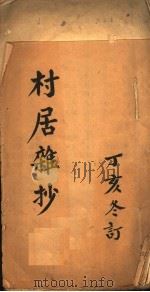 村居雜抄
丁亥冬訂
www.mtoou.info